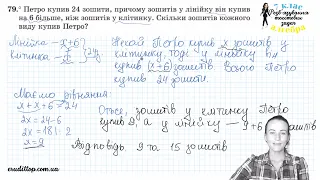 79.° Петро купив 24 зошити, причому зошитів у лінійку він купив
на 6 більше, ніж зошитів у клітинку. Скільки зошитів кожного
виду купив Петро?
7 клас
Розв'язування
текстових
задач
алгебра
Лінійка – x+6
Клітинка – x
24
Нехай Петро купив x зошитів у
клітинку, тоді у лінійку він
купив (x+6) зошитів. Всього Петро
купив 24 зошити.
Маємо рівняння:
x+x+6=24
2x=24-6
2x=18|:2
x=9
Отже, зошитів у клітинку Петро
купив 9, а у лінійку — 9+6
зошитів
Відповідь: 9 та 15 зошитів
erudittop.com.ua